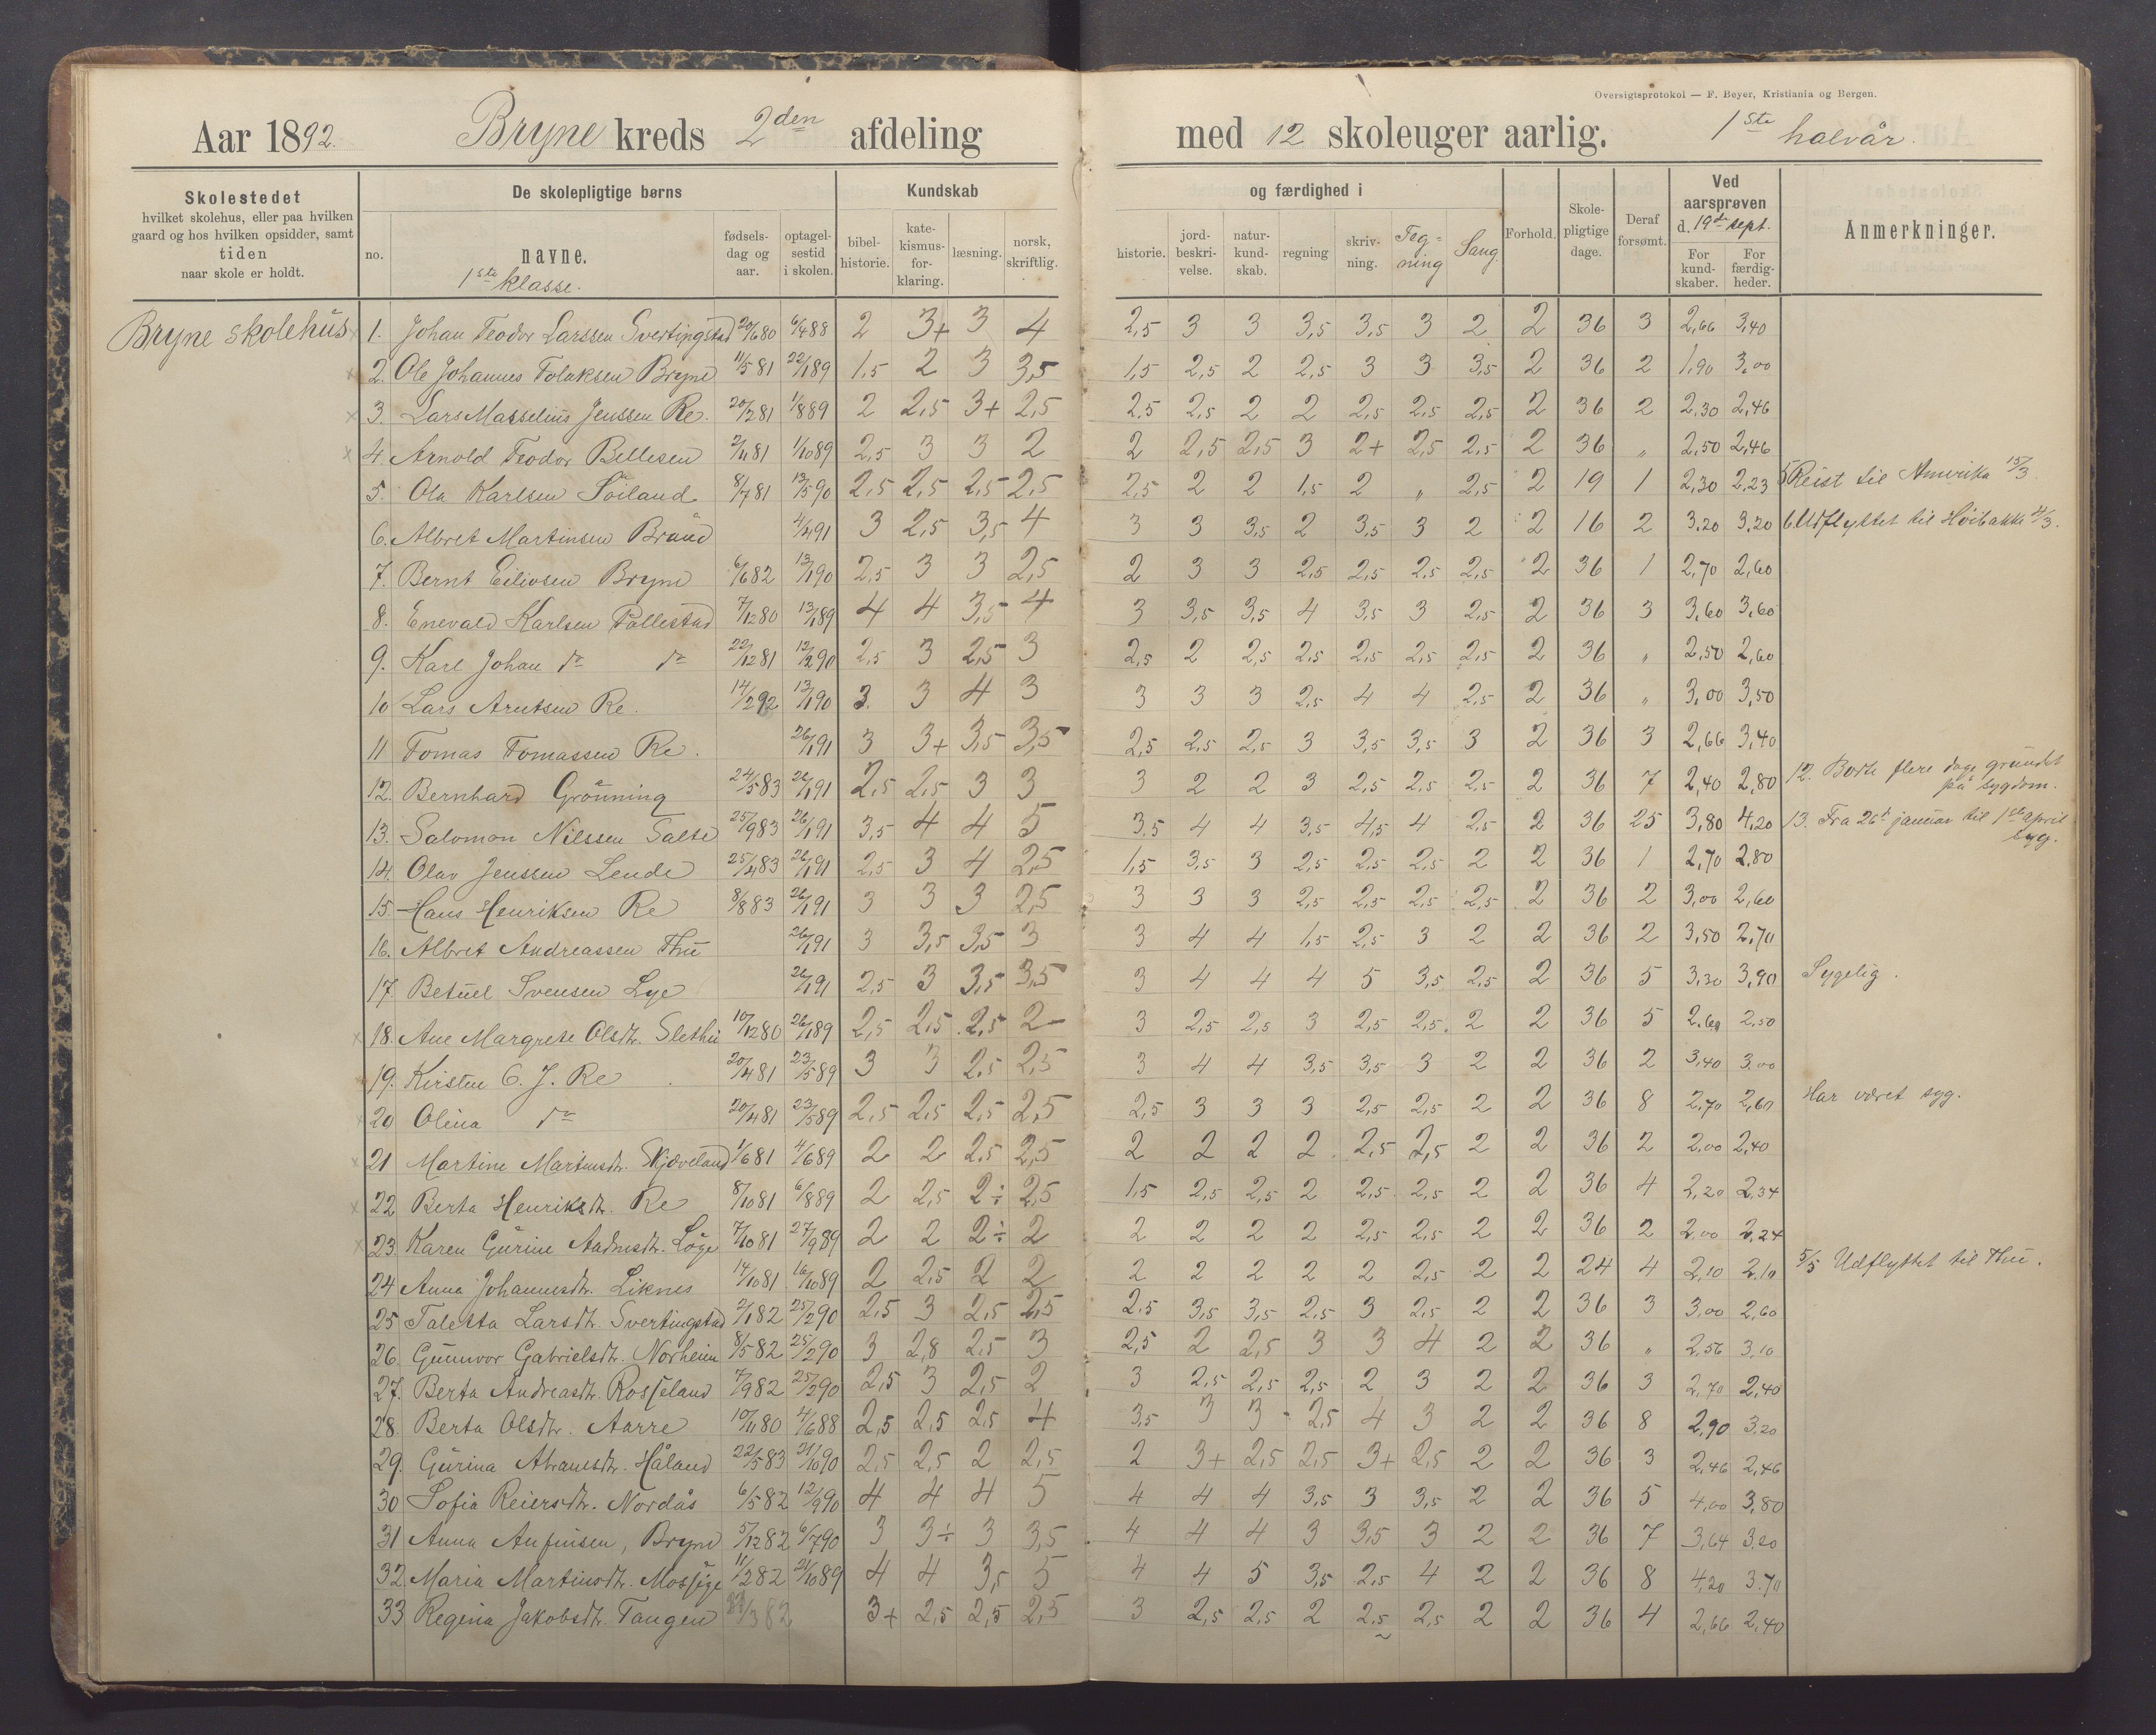 Oversigtsprotokol — F. Beyer, Kristiania og Bergen.
Aar 1892. Bryne kreds 2den afdeling med 12 skoleuger aarlig. 1ste halvår.
Skolestedet hvilket skolehus, eller paa hvilken gaard og hos hvilken opsidder, samt tiden naar skole er holdt.
De skolepligtige børns
no. navne. fødselsdag og aar. optagelsestid i skolen.
1ste klasse.
Kundskab og færdighed i
bibelhistorie. katekismusforklaring. læsning. norsk, skriftlig. historie. jordbeskrivelse. naturkundskab. regning skrivning. Tegning Sang.
Forhold. Skolepligtige dage. Deraf forsømt.
Ved aarsprøven d. 19de sept.
For kundskaber. For færdigheder.
Anmerkninger.
Bryne skolehus
1. Johan Teodor Larssen Svertingstad 20/6 80 6/4 88 2 3+ 3 4 2,5 3 3 3,5 3,5 3 2 2 36 3 2,66 3,40
2. Ole Johannes Folaksen Bryne 11/5 81 22/1 89 1,5 2 3 3,5 1,5 2,5 2 2,5 3 3 3,5 2 36 2 1,90 3,00
3. Lars Masselius Jenssen Re. 20/2 81 1/8 89 2 2,5 3+ 2,5 2,5 2,5 2 2 2,5 2,5 2,5 2 36 2 2,30 2,46
4. Arnold Teodor Bellesen 2/11 81 1/10 89 2,5 3 3 2 2 2,5 2,5 3 2+ 2,5 2,5 2 36 „ 2,50 2,46
5. Ola Karlsen Söiland 8/7 81 13/5 90 2,5 2,5 2,5 2,5 2,5 2 2 1,5 2 „ 2,5 2 19 1 2,30 2,23 5 Reist til Amerika 15/3.
6. Albret Martinsen Braud 4/4 91 3 2,5 3,5 4 3 3 3,5 2 3,5 3 2 2 16 2 3.20 3.20 6. Udflyttet til Höibakke 4/3.
7. Bernt Eilivsen Bryne 6/6 82 13/1 90 2,5 3 3 2,5 2 3 3 2,5 2,5 2,5 2,5 2 36 1 2,70 2,60
8. Enevald Karlsen Pallestad 7/12 80 13/1 89 4 4 3,5 4 3 3,5 3,5 4 3,5 3 2,5 2 36 3 3,60 3,60
9. Karl Johan do do 22/12 81 12/2 90 2,5 3 2,5 3 2,5 2 2,5 2,5 2,5 2,5 2,5 2 36 „ 2,50 2,60
10 Lars Arntsen Re. 14/2 92 13/1 90 3. 3 4 3 3 3 3 2,5 4 4 2,5 2 36 „ 3,00 3,50
11 Tomas Tomassen Re. 26/1 91 3 3+ 3,5 3,5 2,5 2,5 2,5 3 3,5 3,5 3 2 36 3 2,66 3,40
12. Bernhard Grönning 24/5 83 26/1 91 2,5 2,5 3 3 3 2 2 3 2,5 2,5 2,5 2 36 7 2,40 2,80 12. Borte flere dage grundet på sygdom.
13. Salomon Nilssen Salte 25/9 83 26/1 91 3,5 4 4 5 3,5 4 4 3,5 4,5 4 2,5 2 36 25 3,80 4,20 13. Fra 26de januar til 1ste april syg.
14. Olav Jenssen Lende 25/4 83 26/1 91 2,5 3 4 2,5 1,5 3,5 3 2,5 2,5 2,5 2 2 36 1 2,70 2,80
15. Hans Henriksen Re 8/8 83 26/1 91 3 3 3 2,5 3 3 3 2,5 2,5 2,5 2,5 2 36 2 3,00 2,60
16. Albret Andreassen Thu 26/1 91 3 3,5 3,5 3 3 4 4 1,5 2,5 3 2 2 36 2 3,50 2,70
17. Betuel Svensen Lye 26/1 91 2,5 3 3,5 3,5 3 4 4 4 5 3,5 2,5 2 36 5 3,30 3,90 Sygelig.
18. Ane Margrete Olsdtr. Slethei 10/12 80 26/1 89 2,5 2,5 2,5 2 3 2,5 2,5 3 2,5 2,5 2 2 36 5 2,60 2,50
19. Kirsten C. J. Re 20/4 81 23/5 89 3 3 2,5 2,5 3 4 4 3,5 3,5 3 2 2 36 2 3,40 3,00
20 Olina do 20/4 81 23/5 89 2,5 2,5 2,5 2,5 2,5 3 3 3 2,5 2,5 2 2 36 8 2,70 2,60 Har været syg.
21 Martine Martinsdtr. Skjæveland 1/6 81 4/6 89 2 2 2,5 2,5 2 2 2 2 2,5 2,5 2 2 36 2 2,00 2,40
22 Berta Henriksdtr. Re 8/10 81 6/8 89 2 2,5 2÷ 2,5 1,5 2,5 2,5 2 2,5 2,5 2 2 36 4 2,20 2,34
23. Karen Gurine Aadnesdtr. Löge 7/10 81 27/9 89 2 2 2÷ 2 2 2 2 2 2,5 2,5 2 2 36 2 2,00 2,24
24 Anna Johannesdtr. Liknes 14/10 81 16/10 89 2 2,5 2 2 2 2 2 2 2 2,5 2 2 24 4 2,10 2,10 5/5 Udflyttet til Thu.
25 Taletta Larsdtr. Svertingstad 2/1 82 25/2 90 2,5 3 2,5 2,5 2,5 3,5 3,5 2,5 3 2,5 2 2 36 3 3,00 2,60
26. Gunnvor Gabrielsdtr. Norheim 8/5 82 25/2 90 3 2,8 2,5 3 2,5 2 2,5 3 3 4 2 2 36 „ 2,56 3,10
27. Berta Andreasdtr. Rosseland 7/9 82 25/2 90 2,5 3 2,5 2 3 2,5 2,5 2,5 2 3 2 2 36 3 2,70 2,40
28. Berta Olsdtr. Aarre 10/11 80 4/6 88 2,5 2,5 2,5 4 3,5 3 3 2,5 4 3 2 2 36 8 2,90 3,20
29. Gurina Abramsdtr. Håland 22/5 83 21/10 90 2,5 2,5 2 2,5 2 3+ 2,5 2,5 3+ 2,5 2 2 36 3 2,46 2,46
30 Sofia Reiersdtr. Nordås 6/5 82 12/9 90 4 4 4 5 4 4 4 3,5 3 3,5 2 2 36 5 4,00 3,80
31 Anna Anfinsen, Bryne 5/12 82 6/7 90 3 3÷ 3 3,5 4 4 4 3 3,5 3 2 2 36 7 3,64 3,20
32 Maria Martinsdtr. Mossige 11/2 82 21/10 89 4 4 3,5 5 4 4 5 3,5 2,5 4 2 2 36 8 4,20 3.70
33 Regina Jakobsdtr. Tangen 3 82 3+ 2,5 2,5 2,5 3 2,5 2,5 2 2,5 2,5 2 2 36 4 2,66 2,40